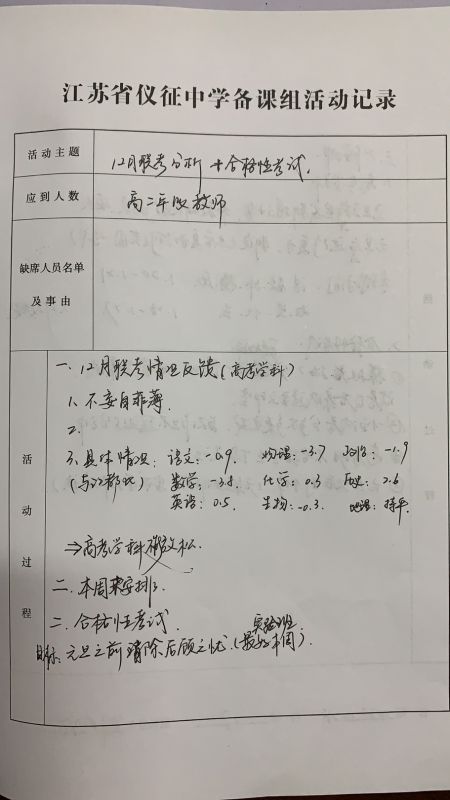 江苏省仪征中学备课组活动记录
活动主题
12月联考分析+合格性考试.
应到人数
高二年级教师
缺席人员名单
及事由
活动过程
一、12月联考情况反馈(高考学科)
1、不妄自菲薄.
2.
3、具体情况: 语文:-0.9. 物理:-3.7 政治:-1.9
(与江都比) 数学:-3.8. 化学:0.3 历史:2.6
英语:0.5. 生物:-0.3. 地理:持平.
⇒高考学科 放松.
二、本周 安排:
二、合格性考试.
实验班.
目标: 元旦之前消除后顾之忧.(最好本周).